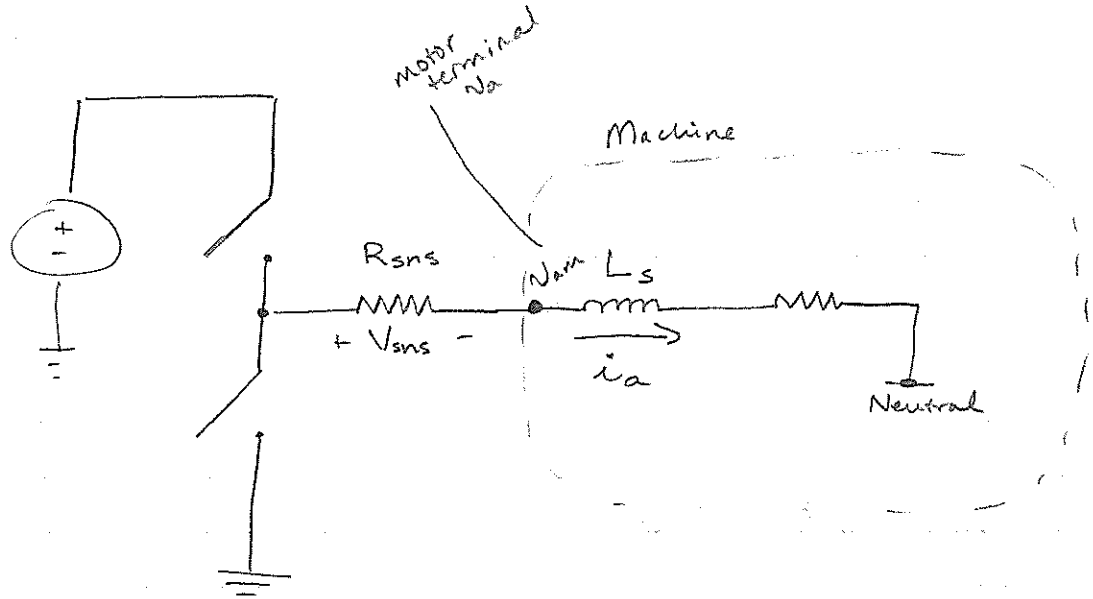 motor
terminal
Na
Machine
+
-
Rsns
+ Vsns -
Nam
Ls
ia
Neutral